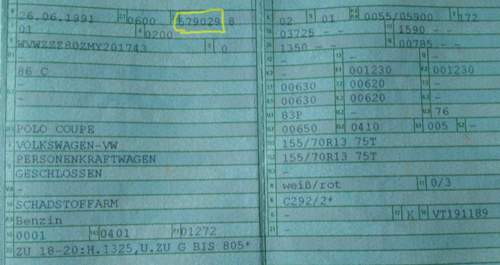 26.06.1991 0600 579029 8
01 0200
WVWZZZ80ZMY201743 0
-
86 C
-
-
-
POLO COUPE
VOLKSWAGEN-VW
PERSONENKRAFTWAGEN
GESCHLOSSEN
-
SCHADSTOFFARM
Benzin
0001 0401 01272
ZU 18-20:H.1325,U.ZU G BIS 805*
02 01 0055/05900 172
03725 - 1590 -
1350 - - 00785 -
- -
- 001230 001230
00630 00620 -
00630 00620 -
83P - 76
00650 0410 005 -
155/70R13 75T
155/70R13 75T
-
weiß/rot 0/3
C292/2*
- K VT191189
- -